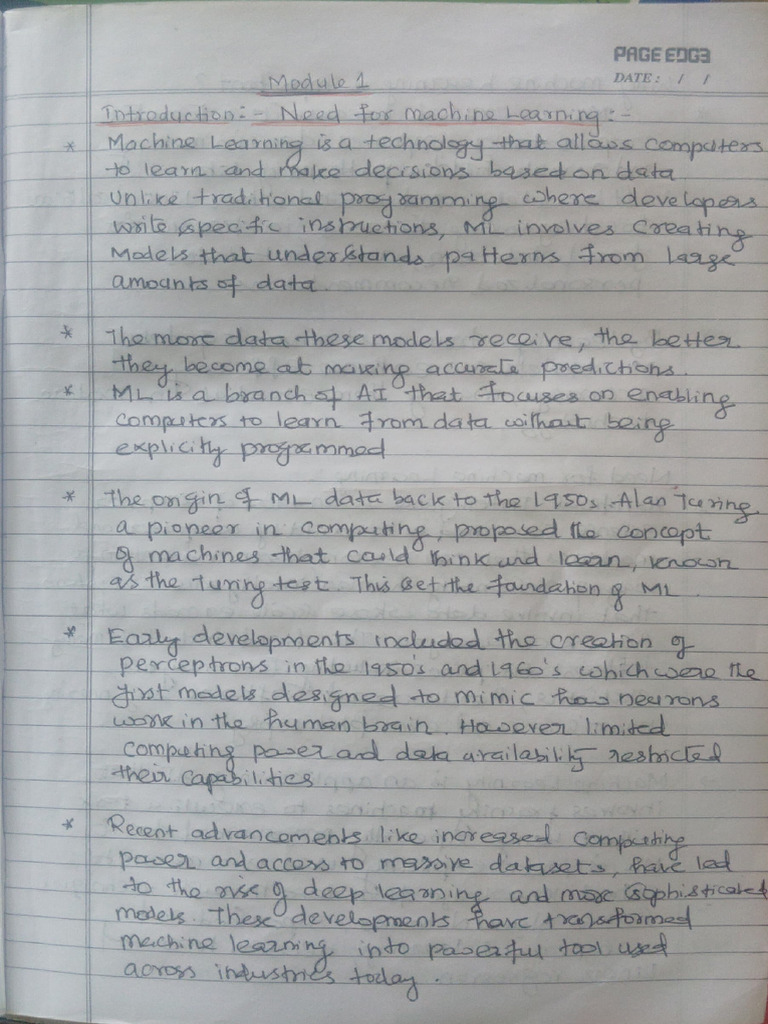 PAGE EDGE
DATE: / /
Module 1
Introduction:- Need for machine Learning:-
* Machine Learning is a technology that allows computers
to learn and make decisions based on data
Unlike traditional programming where developers
write specific instructions, ML involves creating
Models that understands patterns from large
amounts of data
* The more data these models receive, the better
they become at making accurate predictions.
* ML is a branch of AI that focuses on enabling
computers to learn from data without being
explicitly programmed
* The origin of ML data back to the 1950s Alan Turing,
a pioneer in computing, proposed the concept
of machines that could think and learn, known
as the Turing test. This set the foundation of ML.
* Early developments included the creation of
perceptrons in the 1950's and 1960's which were the
first models designed to mimic how neurons
work in the human brain. However limited
computing power and data availability restricted
their capabilities
* Recent advancements like increased computing
power and access to massive datasets, have led
to the rise of deep learning and more sophisticated
models. These developments have transformed
machine learning into powerful tool used
across industries today.